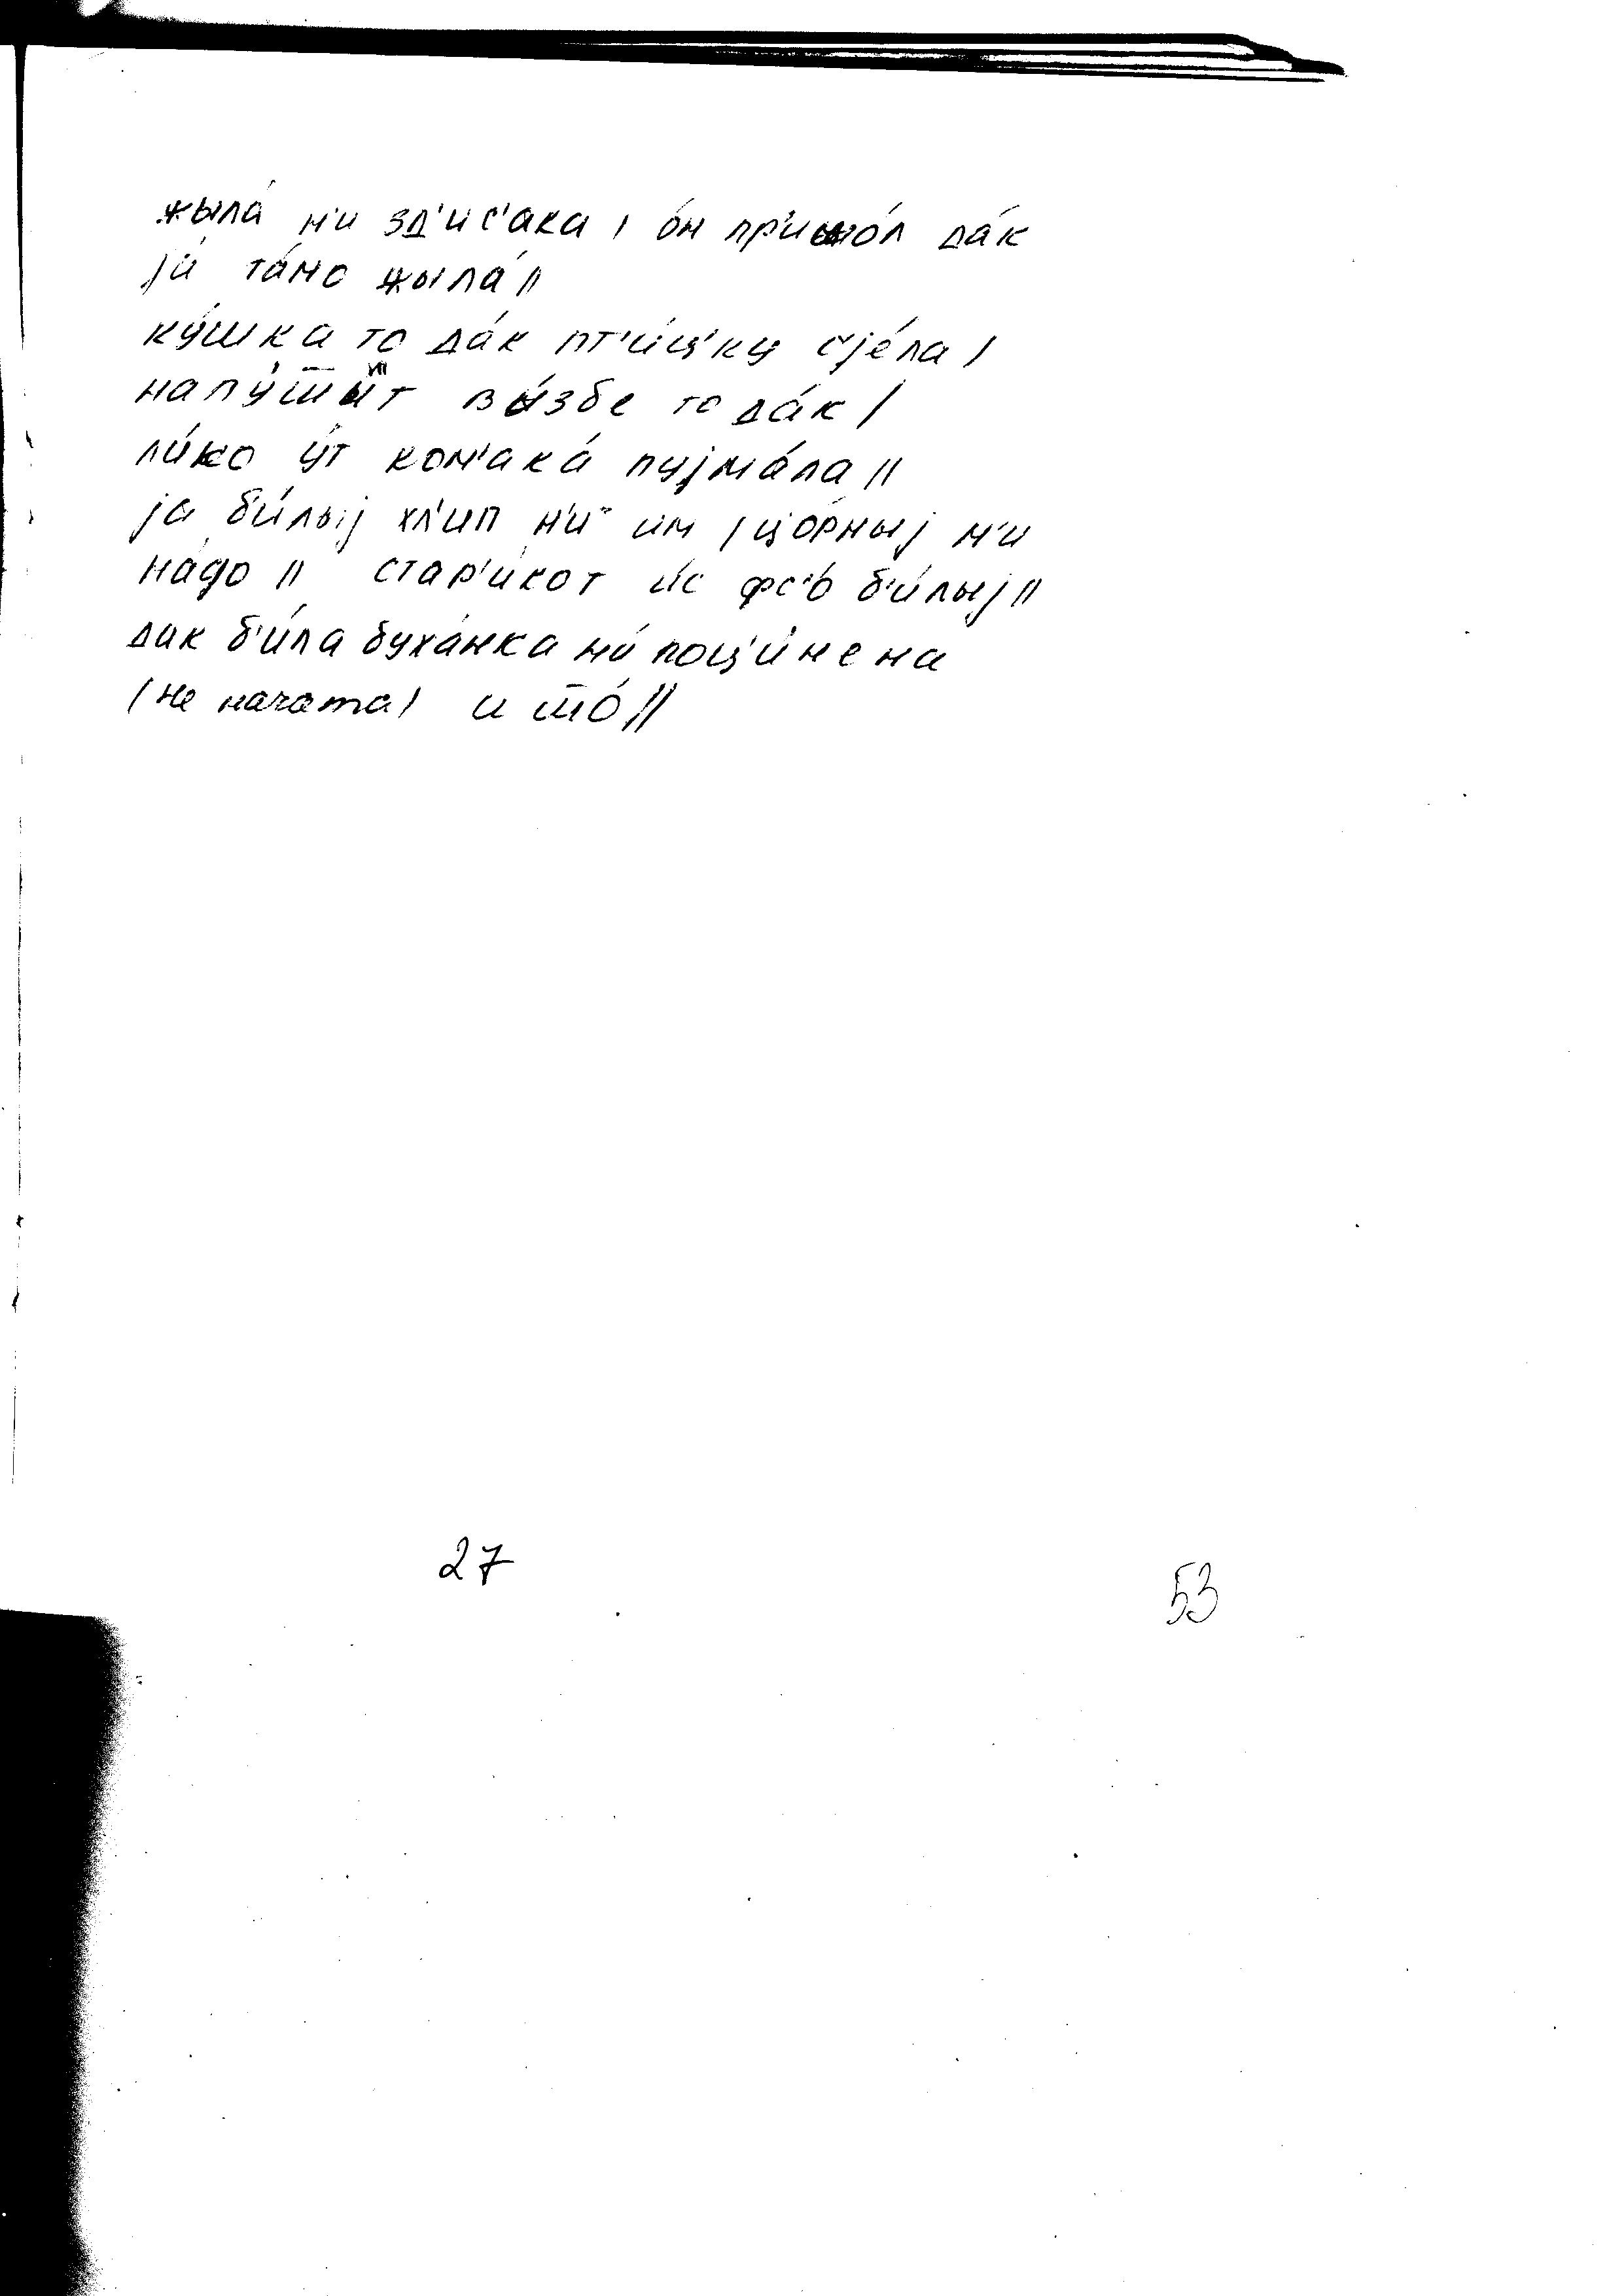 жыла́ н'и зд'ис'ака / о́н пр'ишо́л да́к
ја́ та́мо жыла́ //
ку́шка то да́к пт'и́ц'ку с'је́ла /
напу́ш̄ыт вы́збе то да́к /
ли́ко у́т ком'ака́ пујма́ла //
ја б'и́лыј хл'ип н'и им / цо́рныј н'и
на́до // стар'и́кот и́с фс'о́ б'и́лыј //
дак б'и́ла буха́нка н'и́ поц'и́нена
(не начата) и ш̄о́ //
27
53